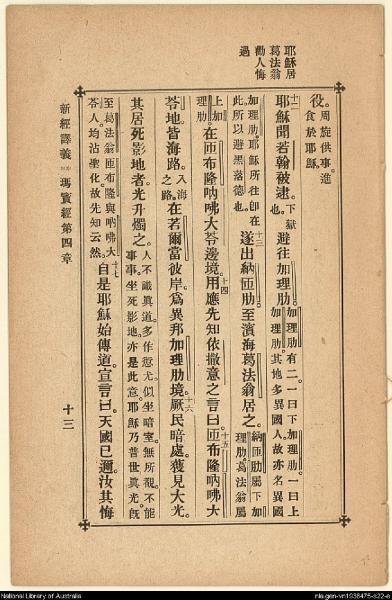 耶穌居
葛法翁
勸人悔
過
役。周旋供事。進食於耶穌。
十二耶穌聞若翰被逮。下獄也。避往加理肋。加理肋有二。一曰下加理肋。一曰上加理肋。其地多異國人。故亦名異國
加理肋。耶穌所往。卽在此。所以避黑落德也。十三遂出納匝肋。至濱海葛法翁居之。納匝肋屬下加理肋。葛法翁屬
上加理肋。在匝布隆吶咈大苓邊境。十四用應先知依撒意之言曰。十五匝布隆吶咈大
苓地。皆海路。入海之路。在若爾當彼岸。爲異邦加理肋境。十六厥民暗處。獲見大光。
其居死影地者。光升燭之。人不識眞道。多作愆尤。似坐暗室。無所覩。不能事事。坐死影地。亦是此意。耶穌乃普世眞光。旣
至葛法翁。匝布隆與吶咈大苓人。均沾聖化。故先知云然。十七自是耶穌始傳道。宣言曰。天國已邇。汝其悔
新經譯義 瑪竇經第四章
十三
National Library of Australia
nla.gen-vn1938475-s22-e